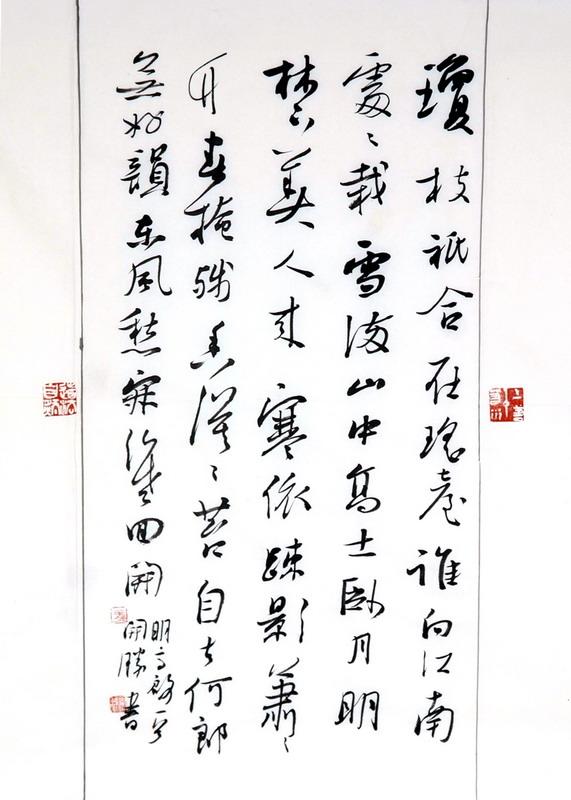 瓊枝祇合在瑤臺誰向江南
處々栽雪滿山中高士臥月明
林下美人來寒依疎影蕭々
竹春掩殘香漠々苔自去何郎
無好韻東風愁寂幾回開
明高啟
開勝書